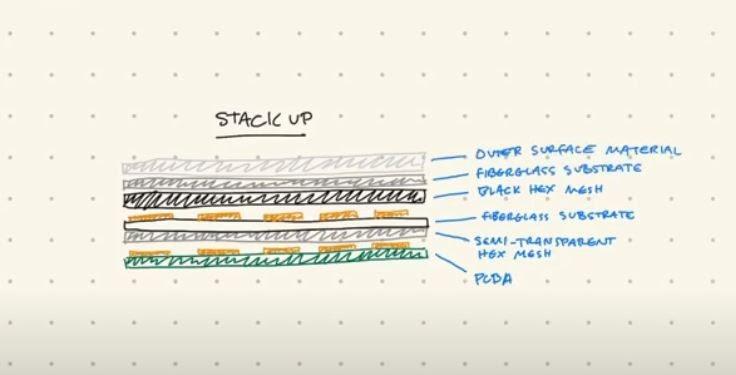 STACK UP
OUTER SURFACE MATERIAL
FIBERGLASS SUBSTRATE
BLACK HEX MESH
FIBERGLASS SUBSTRATE
SEMI-TRANSPARENT
HEX MESH
PCBA